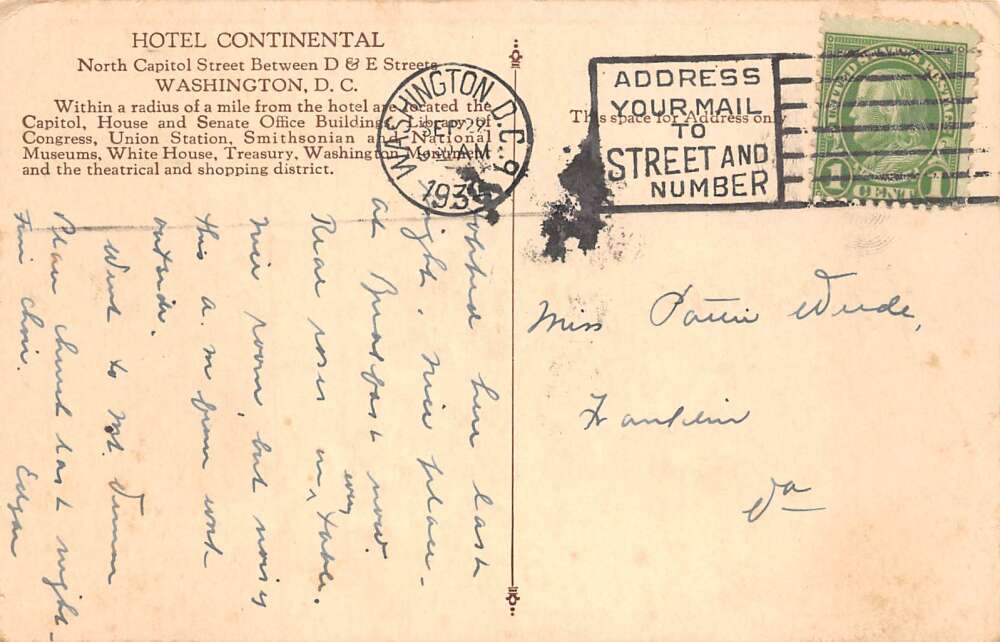 HOTEL CONTINENTAL
North Capitol Street Between D & E Streets
WASHINGTON, D. C.
Within a radius of a mile from the hotel are located the
Capitol, House and Senate Office Buildings, Library of
Congress, Union Station, Smithsonian and National
Museums, White House, Treasury, Washington Monument
and the theatrical and shopping district.
WASHINGTON, D.C. 9
SEP 22
AM
193
ADDRESS
YOUR MAIL
TO
STREET AND
NUMBER
This space for Address only
UNITED STATES POSTAGE
1 CENT 1
Stopped here last
night. Nice place.
at breakfast now.
Rear roses on every table.
Nice room, but noisy
this a.m from work
outside.
Went to Mt. Vernon
Place church last night_
Fine choir. Edgar
Miss
Franklin
Va